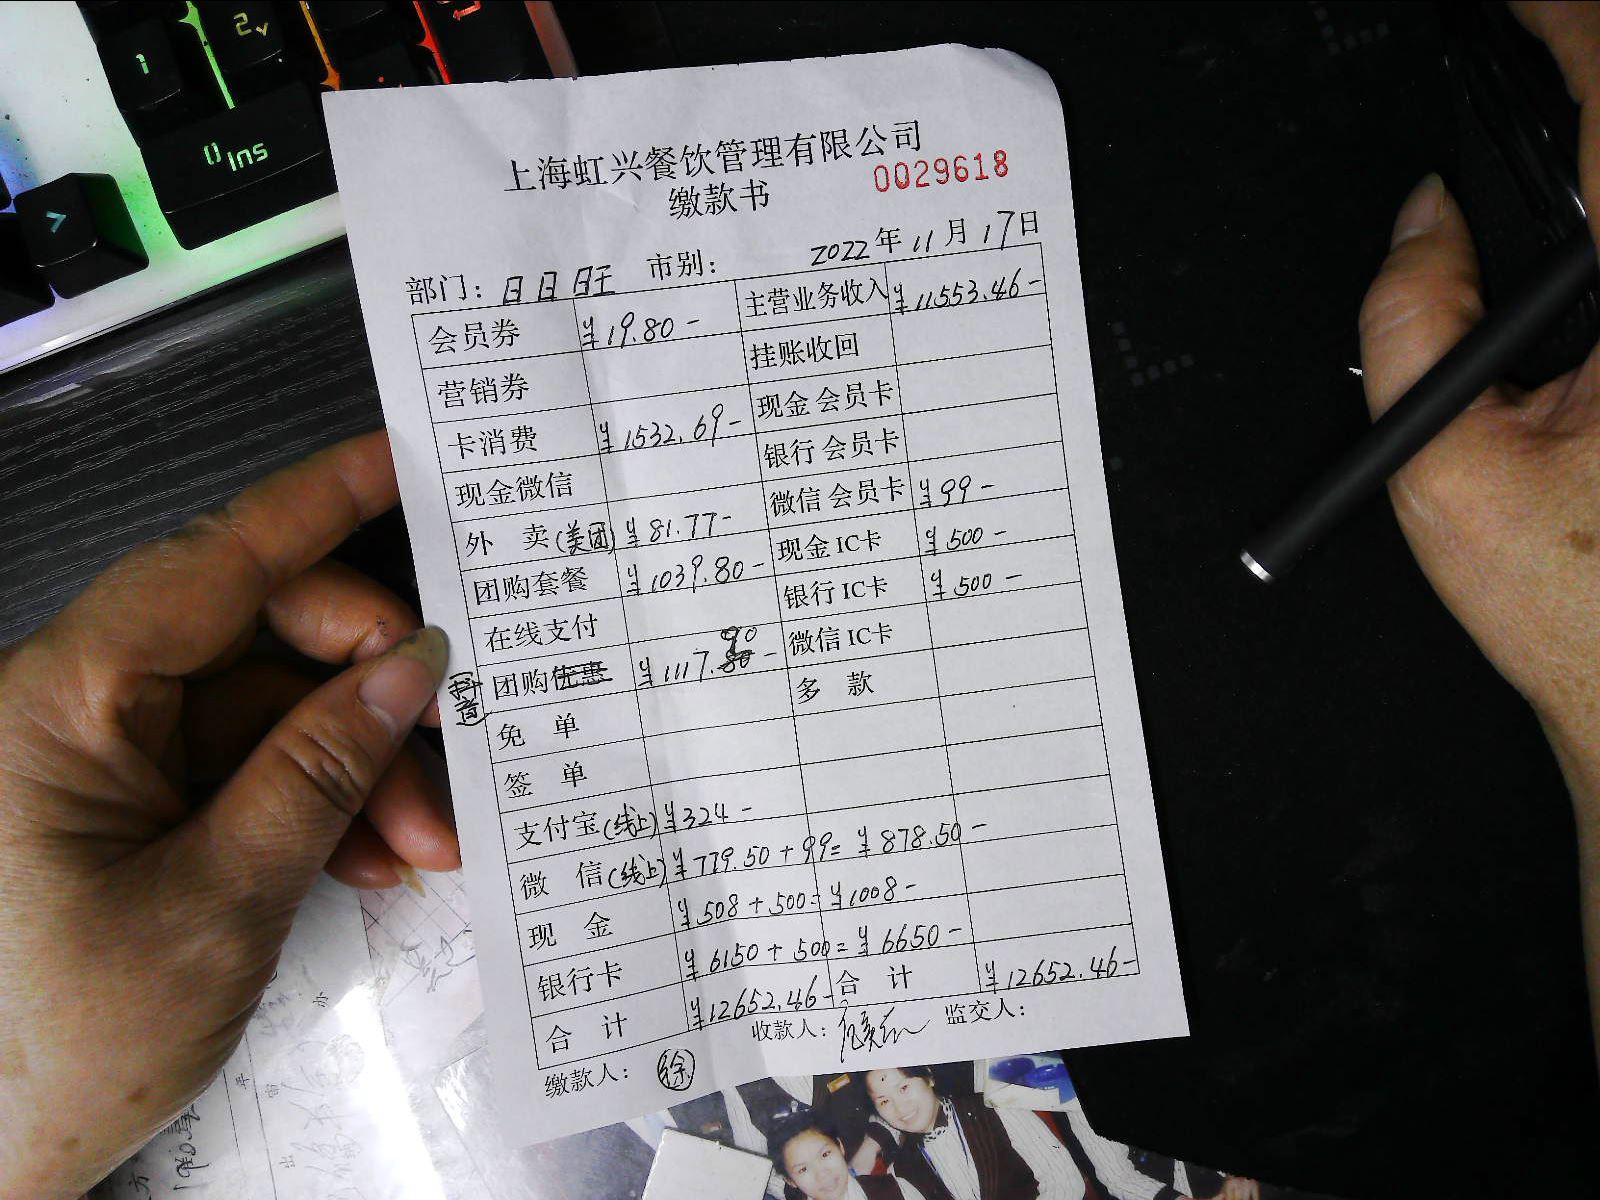 上海虹兴餐饮管理有限公司
缴款书 0029618
部门: 日日旺 市别: 2022年11月17日
会员券 ¥19.80- 主营业务收入 ¥11553.46-
营销券 挂账收回
卡消费 ¥1532.69- 现金会员卡
现金微信 银行会员卡
外 卖(美团) ¥81.77- 微信会员卡 ¥99-
团购套餐 ¥1039.80- 现金IC卡 ¥500-
在线支付 银行IC卡 ¥500-
(抖音) 团购优惠 ¥1117.90- 微信IC卡
免 单 多 款
签 单
支付宝(线上) ¥324-
微 信(线上) ¥779.50+99= ¥878.50-
现 金 ¥508+500= ¥1008-
银行卡 ¥6150+500= ¥6650-
合 计 ¥12652.46- 合 计 ¥12652.46-
缴款人: 徐 收款人: 监交人:
1
2
0 Ins